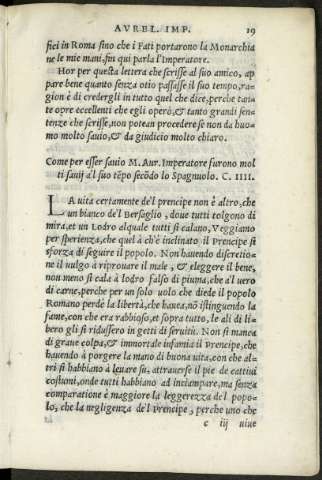 AVREL. IMP. 19
fici in Roma sino che i Fati portarono la Monarchia
ne le mie mani, sin qui parla l'Imperatore.
Hor per questa lettera che scrisse al suo amico, ap
pare bene quanto senza otio passasse il suo tempo, ra-
gion è di credergli in tutto quel che dice, perche tan-
te opre eccellenti che egli operò, & tanto grandi sen-
tenze che scrisse, non potean procedere se non da huo-
mo molto sauio, & da giudicio molto chiaro.
Come per esser sauio M. Aur. Imperatore furono mol
ti sauij al suo tẽpo secõdo lo Spagnuolo. C. IIII.
LA uita certamente de'l prencipe non è altro, che
un bianco de'l Bersaglio, doue tutti tolgono di
mira, et un Lodro al quale tutti si calano, Veggiamo
per sperienza, che quel à ch'è inclinato il Prencipe si
sforza di seguire il popolo. Non hauendo discretio-
ne il uulgo à riprouare il male, & eleggere il bene,
non meno si cala à lodro falso di piuma, che a'l uero
di carne, perche per un solo uolo che diede il popolo
Romano perdè la libertà, che hauea, nõ istinguendo la
fame, con che era rabbioso, et sopra tutto, le ali di li-
bero gli si ridussero in getti di seruitù. Non si manca
di graue colpa, & immortale infamia il Prencipe, che
hauendo à porgere la mano di buona uita, con che al-
tri si habbiano à leuare su, attrauerse il pie de cattiui
costumi, onde tutti habbiano ad inciampare, ma senza
comparatione è maggiore la leggerezza de'l popo-
lo, che la negligenza de'l Prencipe, perche uno che
c iij uiue